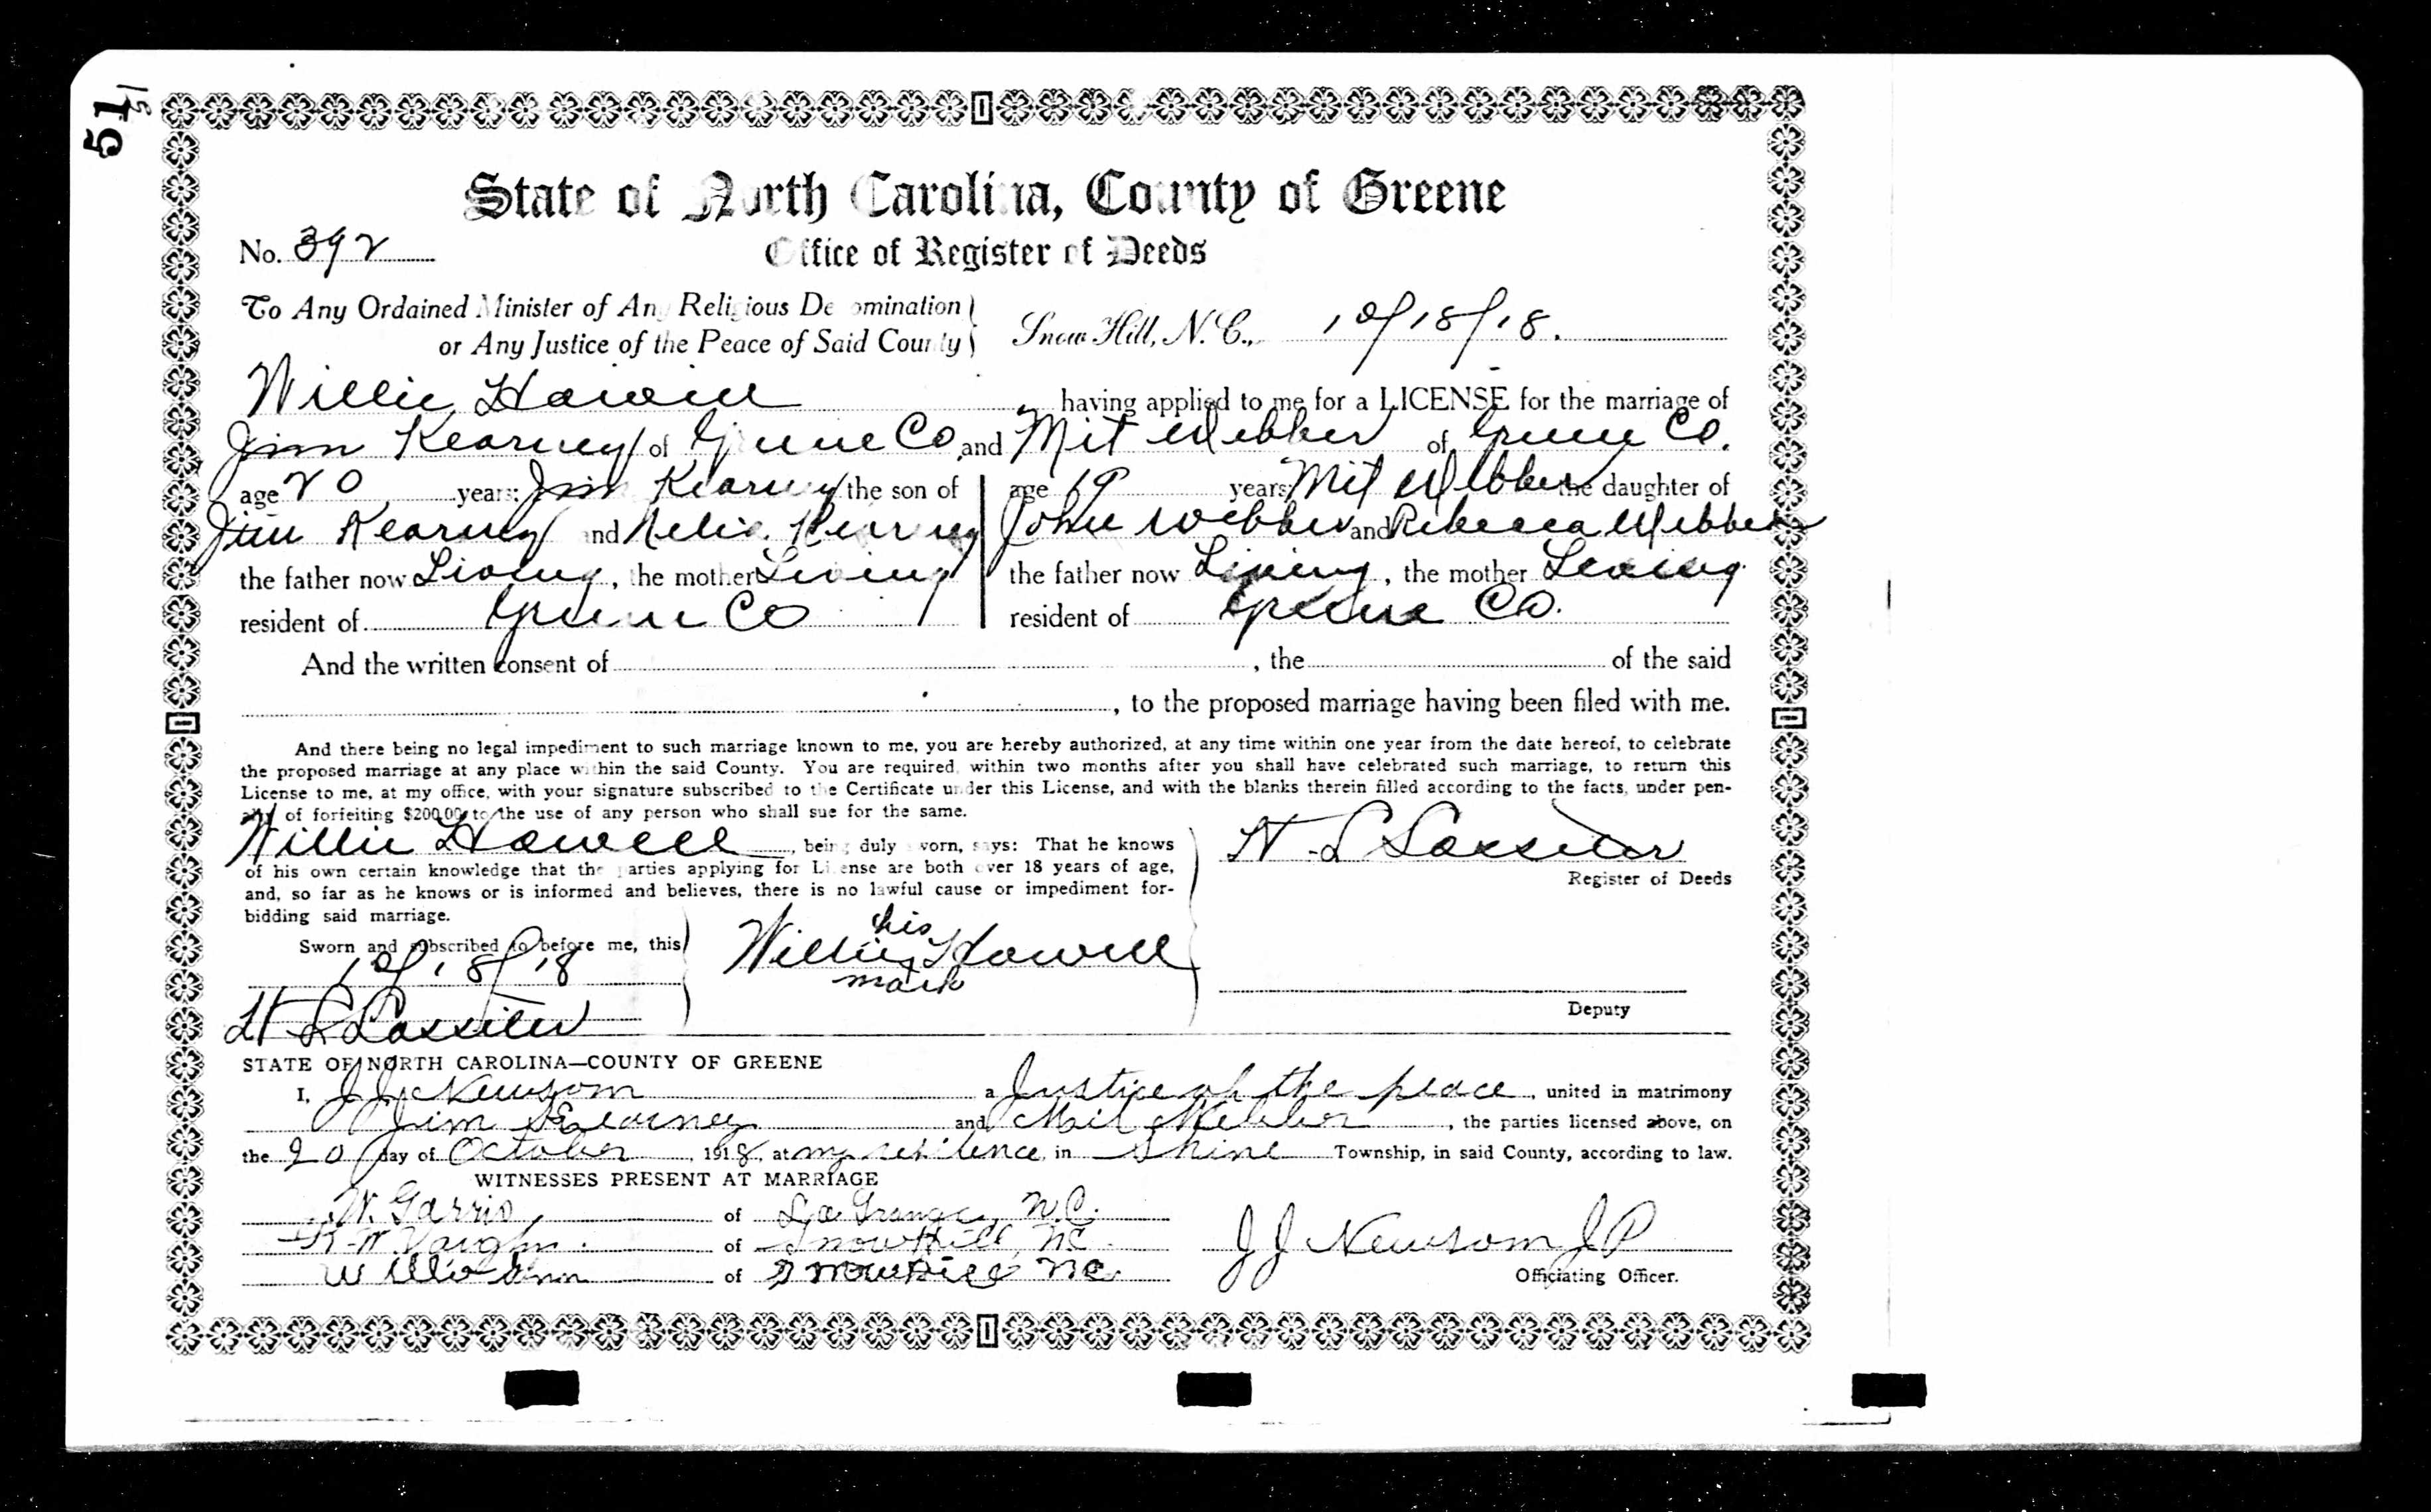 51
51
State of North Carolina, County of Greene
No. 392
Office of Register of Deeds
To Any Ordained Minister of Any Religious Denomination
or Any Justice of the Peace of Said County
Snow Hill, N. C., 10/18/18.
Willie Howell having applied to me for a LICENSE for the marriage of
Jim Kearney of Greene Co. and Mit Webber of Greene Co.
age 20 years Jim Kearney the son of
Jim Kearney and Kearney
the father now Living, the mother Living
resident of Greene Co
age 19 years Mit Webber the daughter of
John Webber and Rebecca Webber
the father now Living, the mother Living
resident of Greene Co.
And the written consent of , the of the said
, to the proposed marriage having been filed with me.
And there being no legal impediment to such marriage known to me, you are hereby authorized, at any time within one year from the date hereof, to celebrate
the proposed marriage at any place within the said County. You are required, within two months after you shall have celebrated such marriage, to return this
License to me, at my office, with your signature subscribed to the Certificate under this License, and with the blanks therein filled according to the facts, under pen-
alty of forfeiting $200.00 to the use of any person who shall sue for the same.
Willie Howell, being duly sworn, says: That he knows
of his own certain knowledge that the parties applying for License are both over 18 years of age,
and, so far as he knows or is informed and believes, there is no lawful cause or impediment for-
bidding said marriage.
Sworn and subscribed to before me, this
10/18/18
his
Willie Howell
mark
Register of Deeds
Deputy
STATE OF NORTH CAROLINA—COUNTY OF GREENE
I, J J Newsom a Justice of the peace, united in matrimony
Jim Kearney and Mit Webber, the parties licensed above, on
the 20 day of October, 1918, at my residence, in Shine Township, in said County, according to law.
WITNESSES PRESENT AT MARRIAGE
W. Garris of La Grange, N.C.
W. Vaughn of Snow Hill, NC.
of Snow Hill NC.
J J Newsom J P
Officiating Officer.